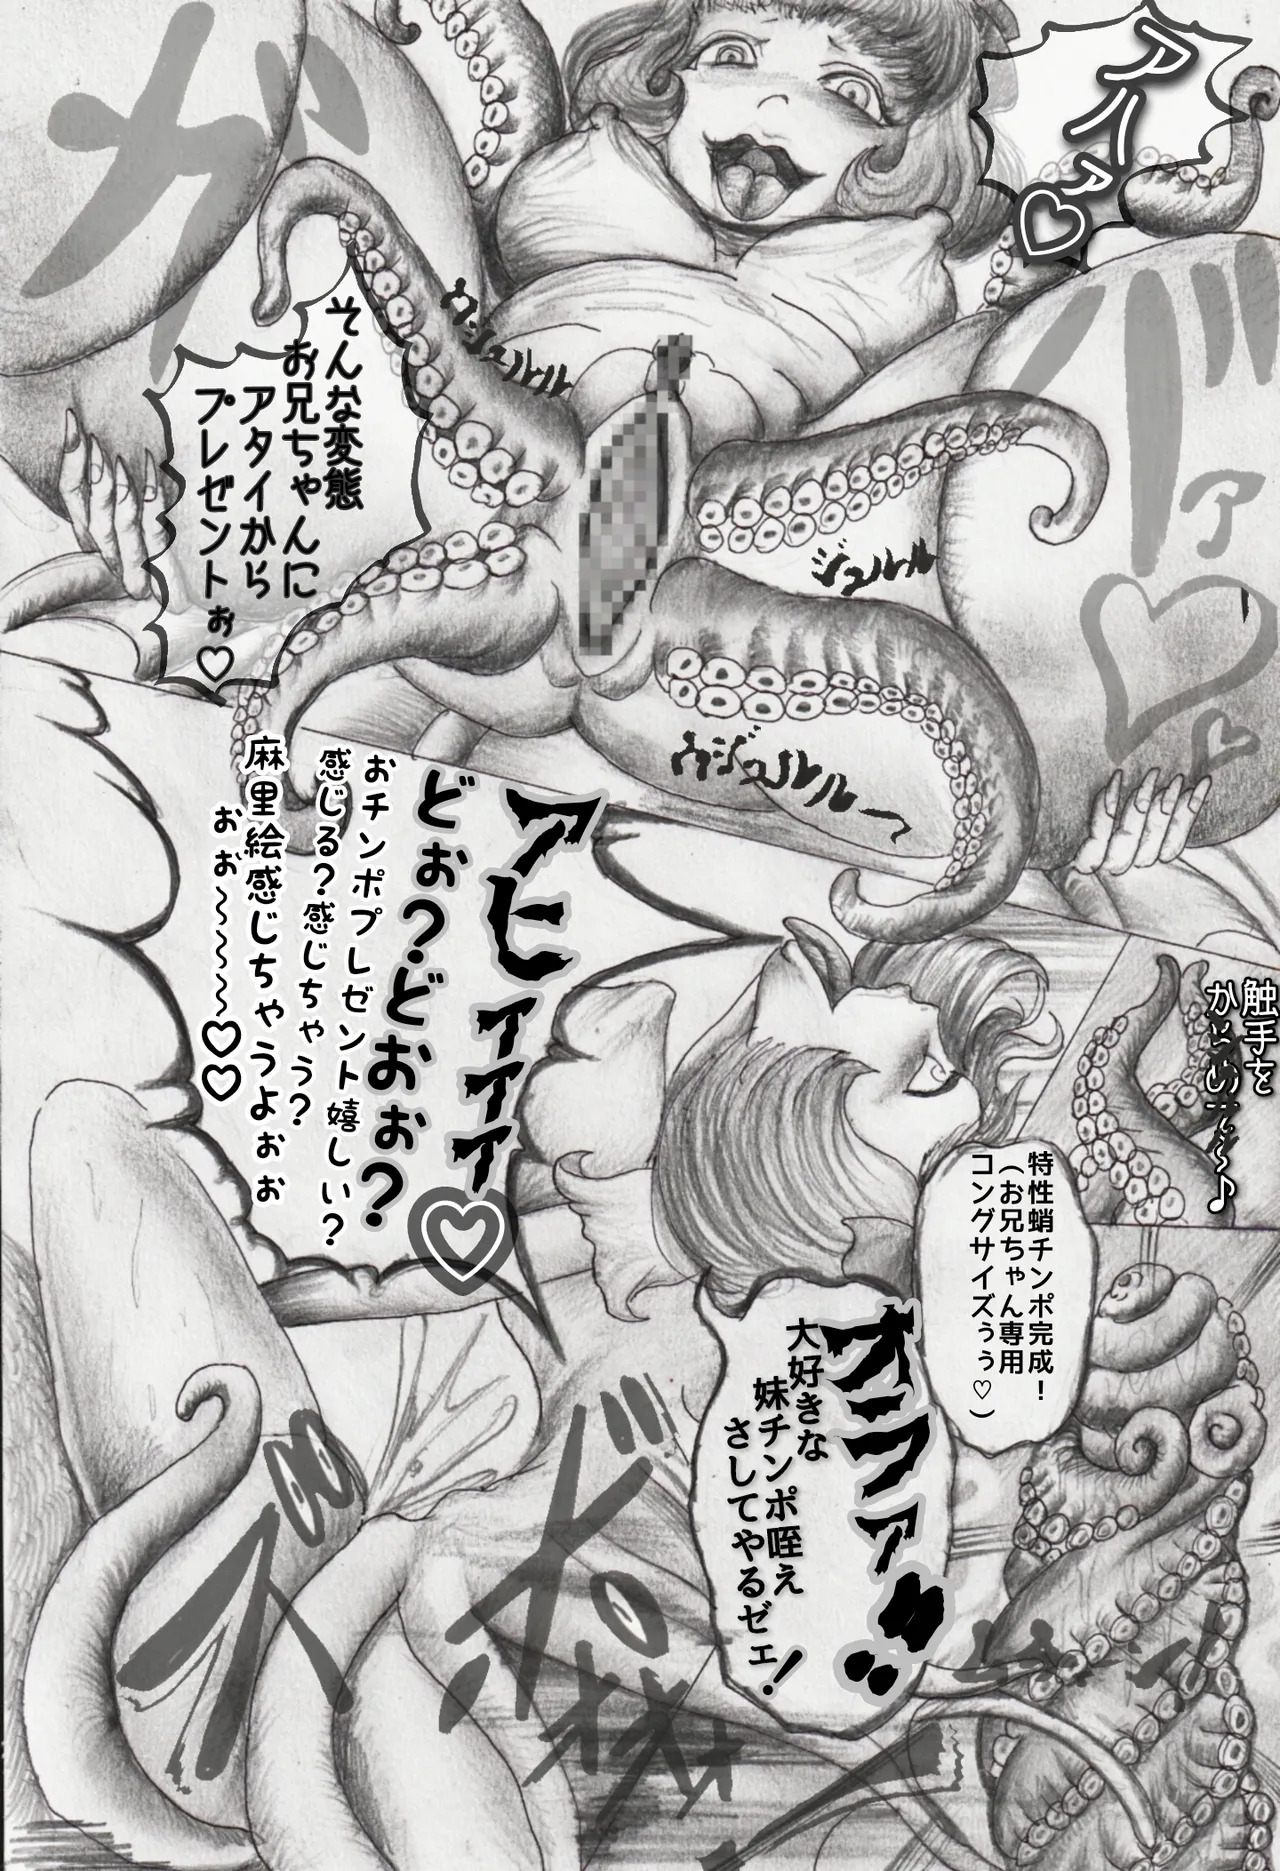 アハァ♡
ガバァ♡
そんな変態
お兄ちゃんに
アタイから
プレゼントぉ♡
ウジュルル
ジュルル
ウジュルルー
アヒィィィィ♡
どぉ?どぉぉ?
おチンポプレゼント嬉しい?
感じる?感じちゃう?
麻里絵感じちゃうよぉぉ
ぉぉ～～～～～♡♡
触手を
特性蛸チンポ完成!
(お兄ちゃん専用
コングサイズぅぅ♡)
オラァッ!!
大好きな
妹チンポ咥え
さしてやるゼェ!